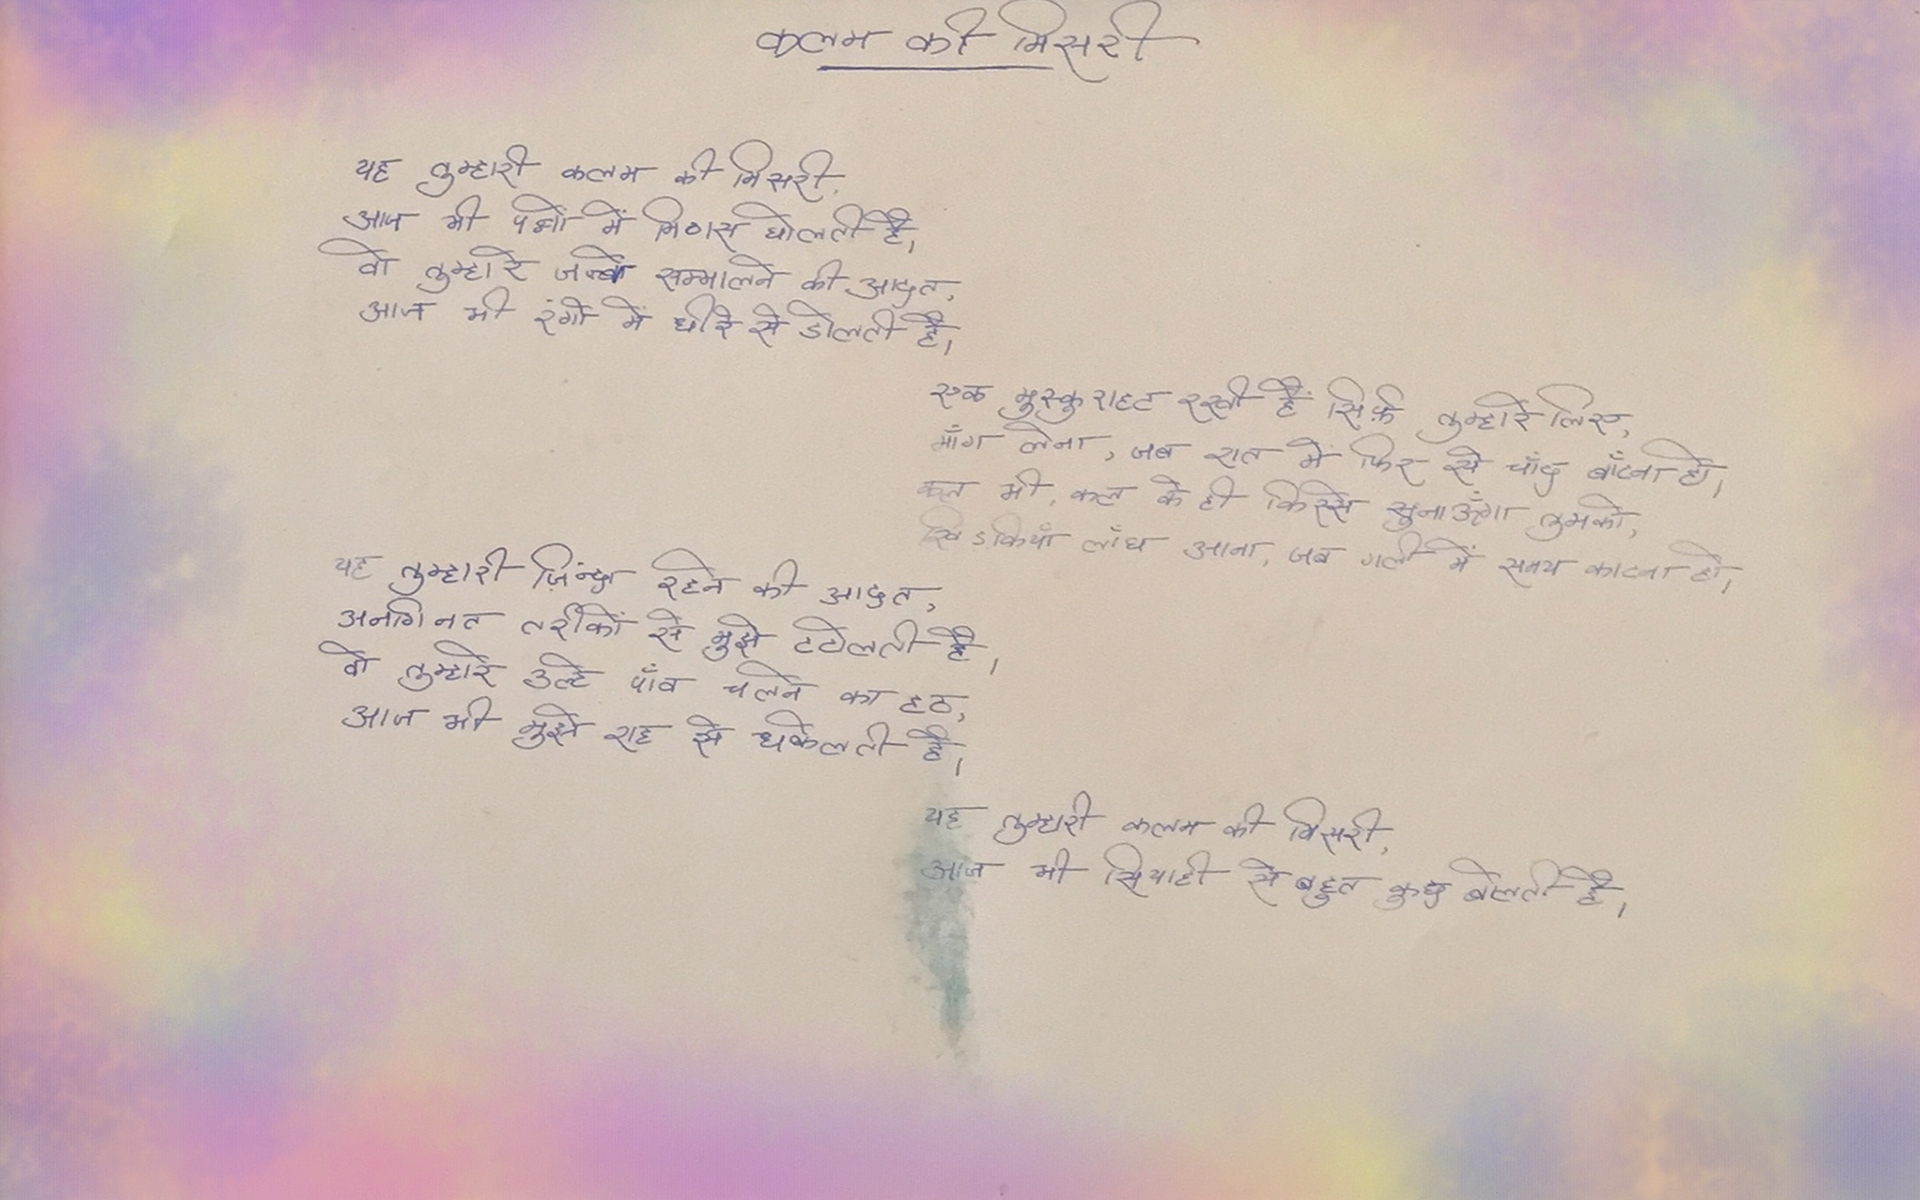 कलम की मिसरी
यह तुम्हारी कलम की मिसरी,
आज भी पन्नों में मिठास घोलती है,
वो तुम्हारे जज़्बे सम्भालने की आदत,
आज भी रंगों में धीरे से डोलती है,
एक मुस्कुराहट रखी है सिर्फ़ तुम्हारे लिए,
माँग लेना, जब रात में फिर से चाँद बाँटना हो,
कल भी, कल के ही किस्से सुनाऊँगा तुमको,
खिड़कियाँ लाँघ आना, जब गली में समय काटना हो,
यह तुम्हारी ज़िंन्दा रहने की आदत,
अनगिनत तरीकों से मुझे टटोलती है,
वो तुम्हारे उल्टे पाँव चलने का हठ,
आज भी मुझे राह से धकेलती है,
यह तुम्हारी कलम की मिसरी,
आज भी सियाही से बहुत कुछ बोलती है,